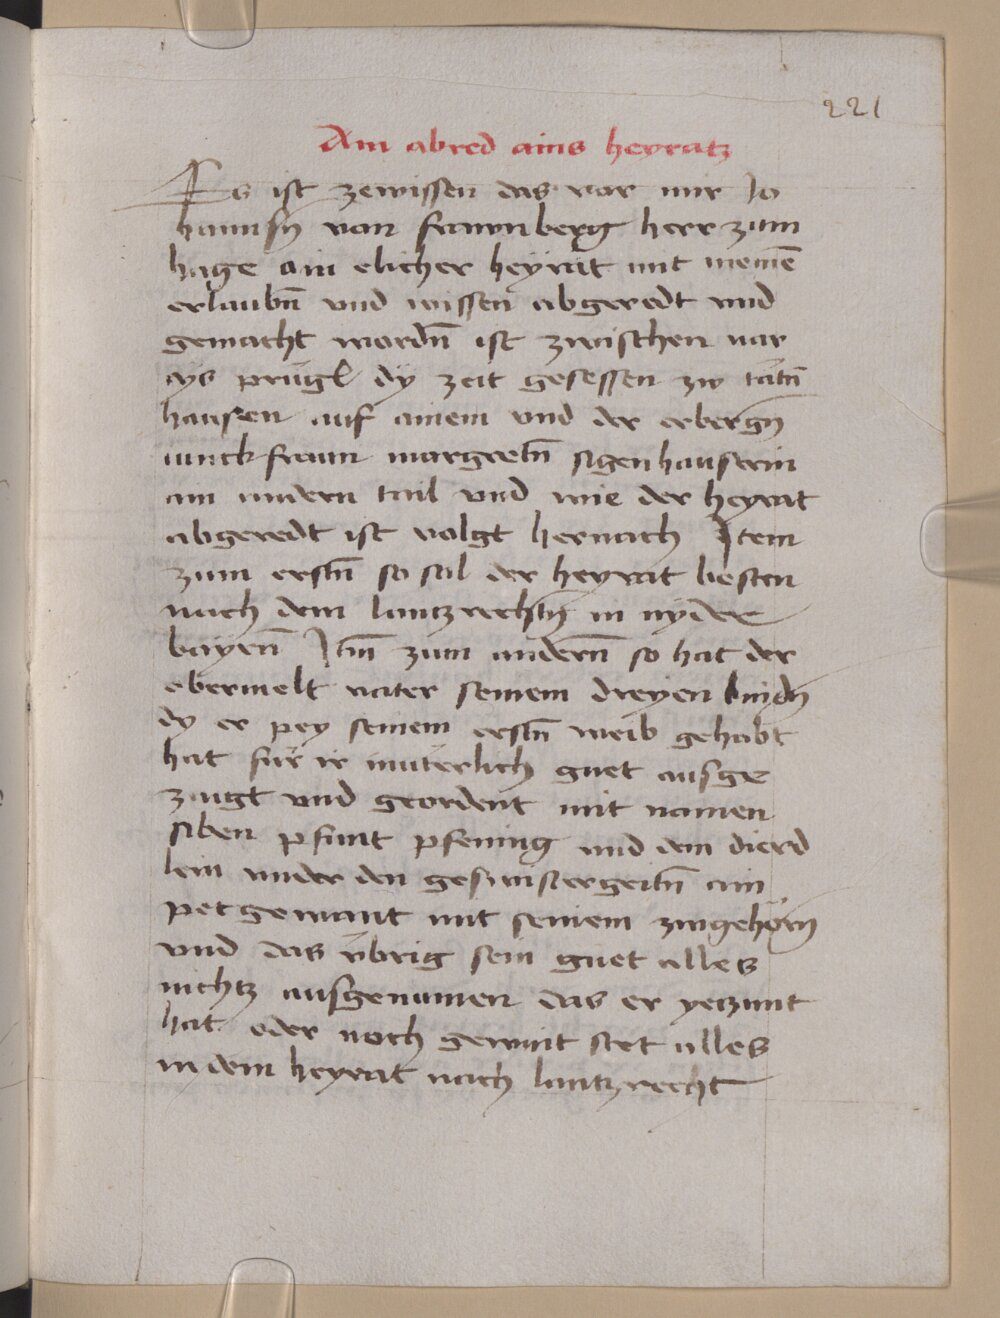 221
Ain abred ains heyratz
Es ist zewissen das vor mir Jo
hannsn̄ von frawnberg herr zum
hage ain elicher heyrat mit meinē
erlaubn̄ vnd wissen abgeredt vnd
gemacht wordn̄ ist zwischen
prügl dy zeit gesessen zw tatn̄
hausen auf ainem vnd der erbergn̄
iunckfrawn margretn̄ sigenhauserin
am andern tail vnd wie der heyrat
abgeredt ist volgt hernach Item
zum erstn̄ so sol der heyrat besten
nach dem lantzrechtn̄ in nyder
bayrn̄ Itm̄ zum andern̄ so hat der
obermelt vater seinem dreyen kindn̄
dy er pey seinem erstn̄ weib gehabt
hat für ir müterlich guet ausge
zaigt vnd geordent mit namen
siben pfunt pfening vnd dem dierd
lein vnder den geswistergeitn̄ ain
petgewant mit seinem zwgehörn̄
vnd das übrig sein guet alles
nichtz ausgenumen das er yeczunt
hat oder noch gewint stet alles
in dem heyrat nach lantzrecht